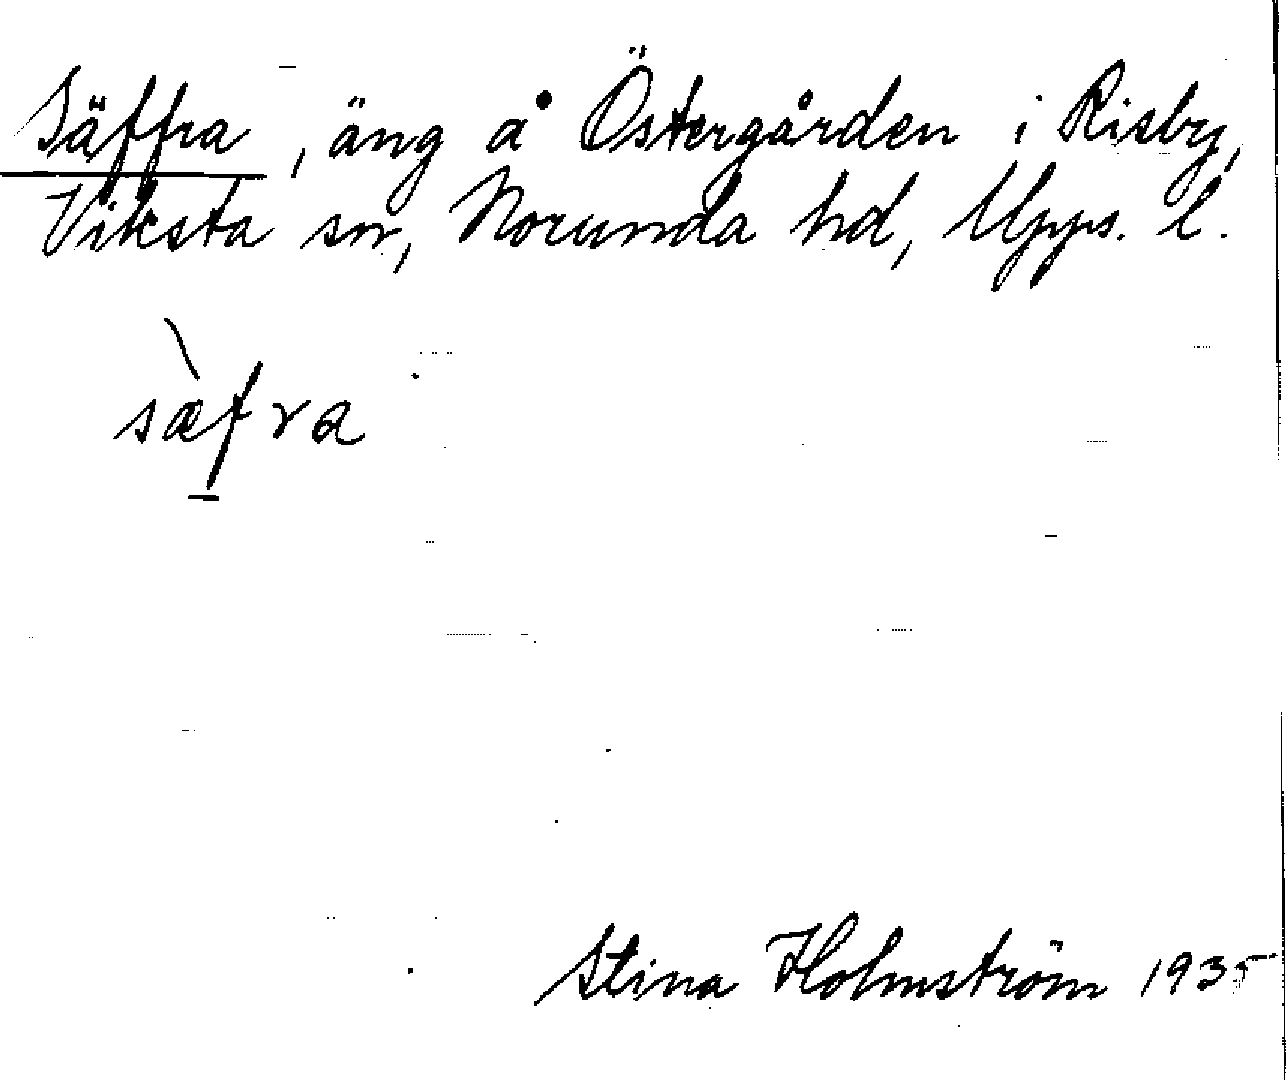 Säffra, äng å Östergården i Risby,
Viksta sn, Norunda hd, Upps. l.
sæ̀f̱ra
Stina Holmström 1935